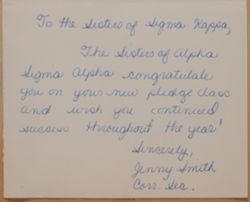 To the Sisters of Sigma Kappa,
The Sisters of Alpha
Sigma Alpha congratulate
you on your new pledge class
and wish you continued
success throughout the year!
Sincerely,
Jenny Smith
Corr. Sec.